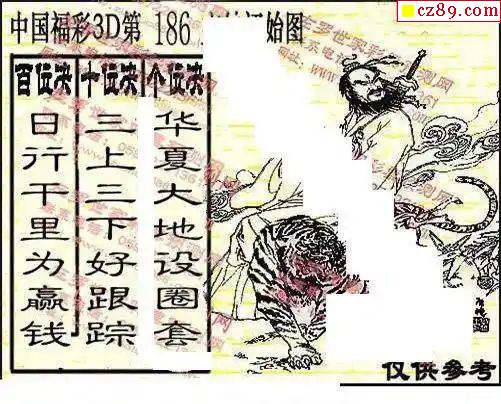 cz89.com
中国福彩3D第 186 始图
百位决 十位决 个位决
日行千里为赢钱
三上三下好跟踪
华夏大地设圈套
仅供参考